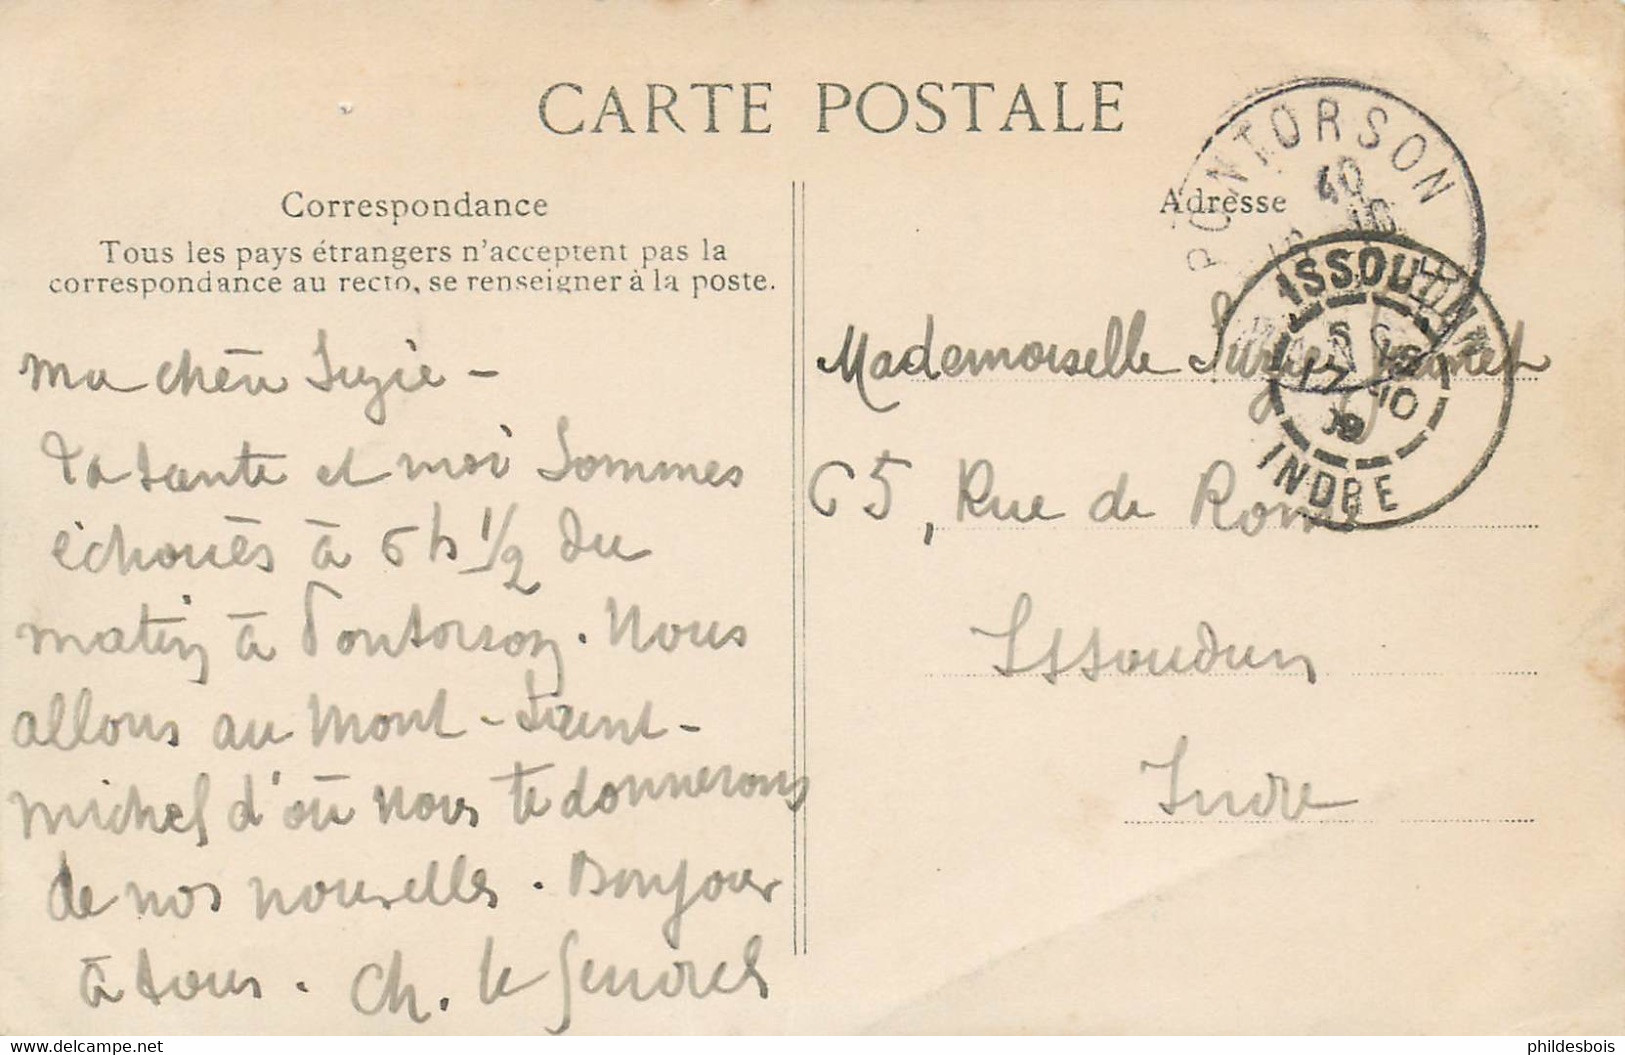 CARTE POSTALE
Correspondance
Tous les pays étrangers n'acceptent pas la
correspondance au recto, se renseigner à la poste.
Ma chère Suzie -
Ta tante et moi sommes
échoués à 6 h 1/2 du
matin à Pontorson. Nous
allons au Mont-Saint-
Michel d'où nous te donnerons
de nos nouvelles. Bonjour
à tous. Ch. le
Adresse
PONTORSON
40
16
ISSOUDUN
17 10
09
INDRE
Mademoiselle
65, Rue de Rome
Issoudun
Indre
www.delcampe.net
phildesbois